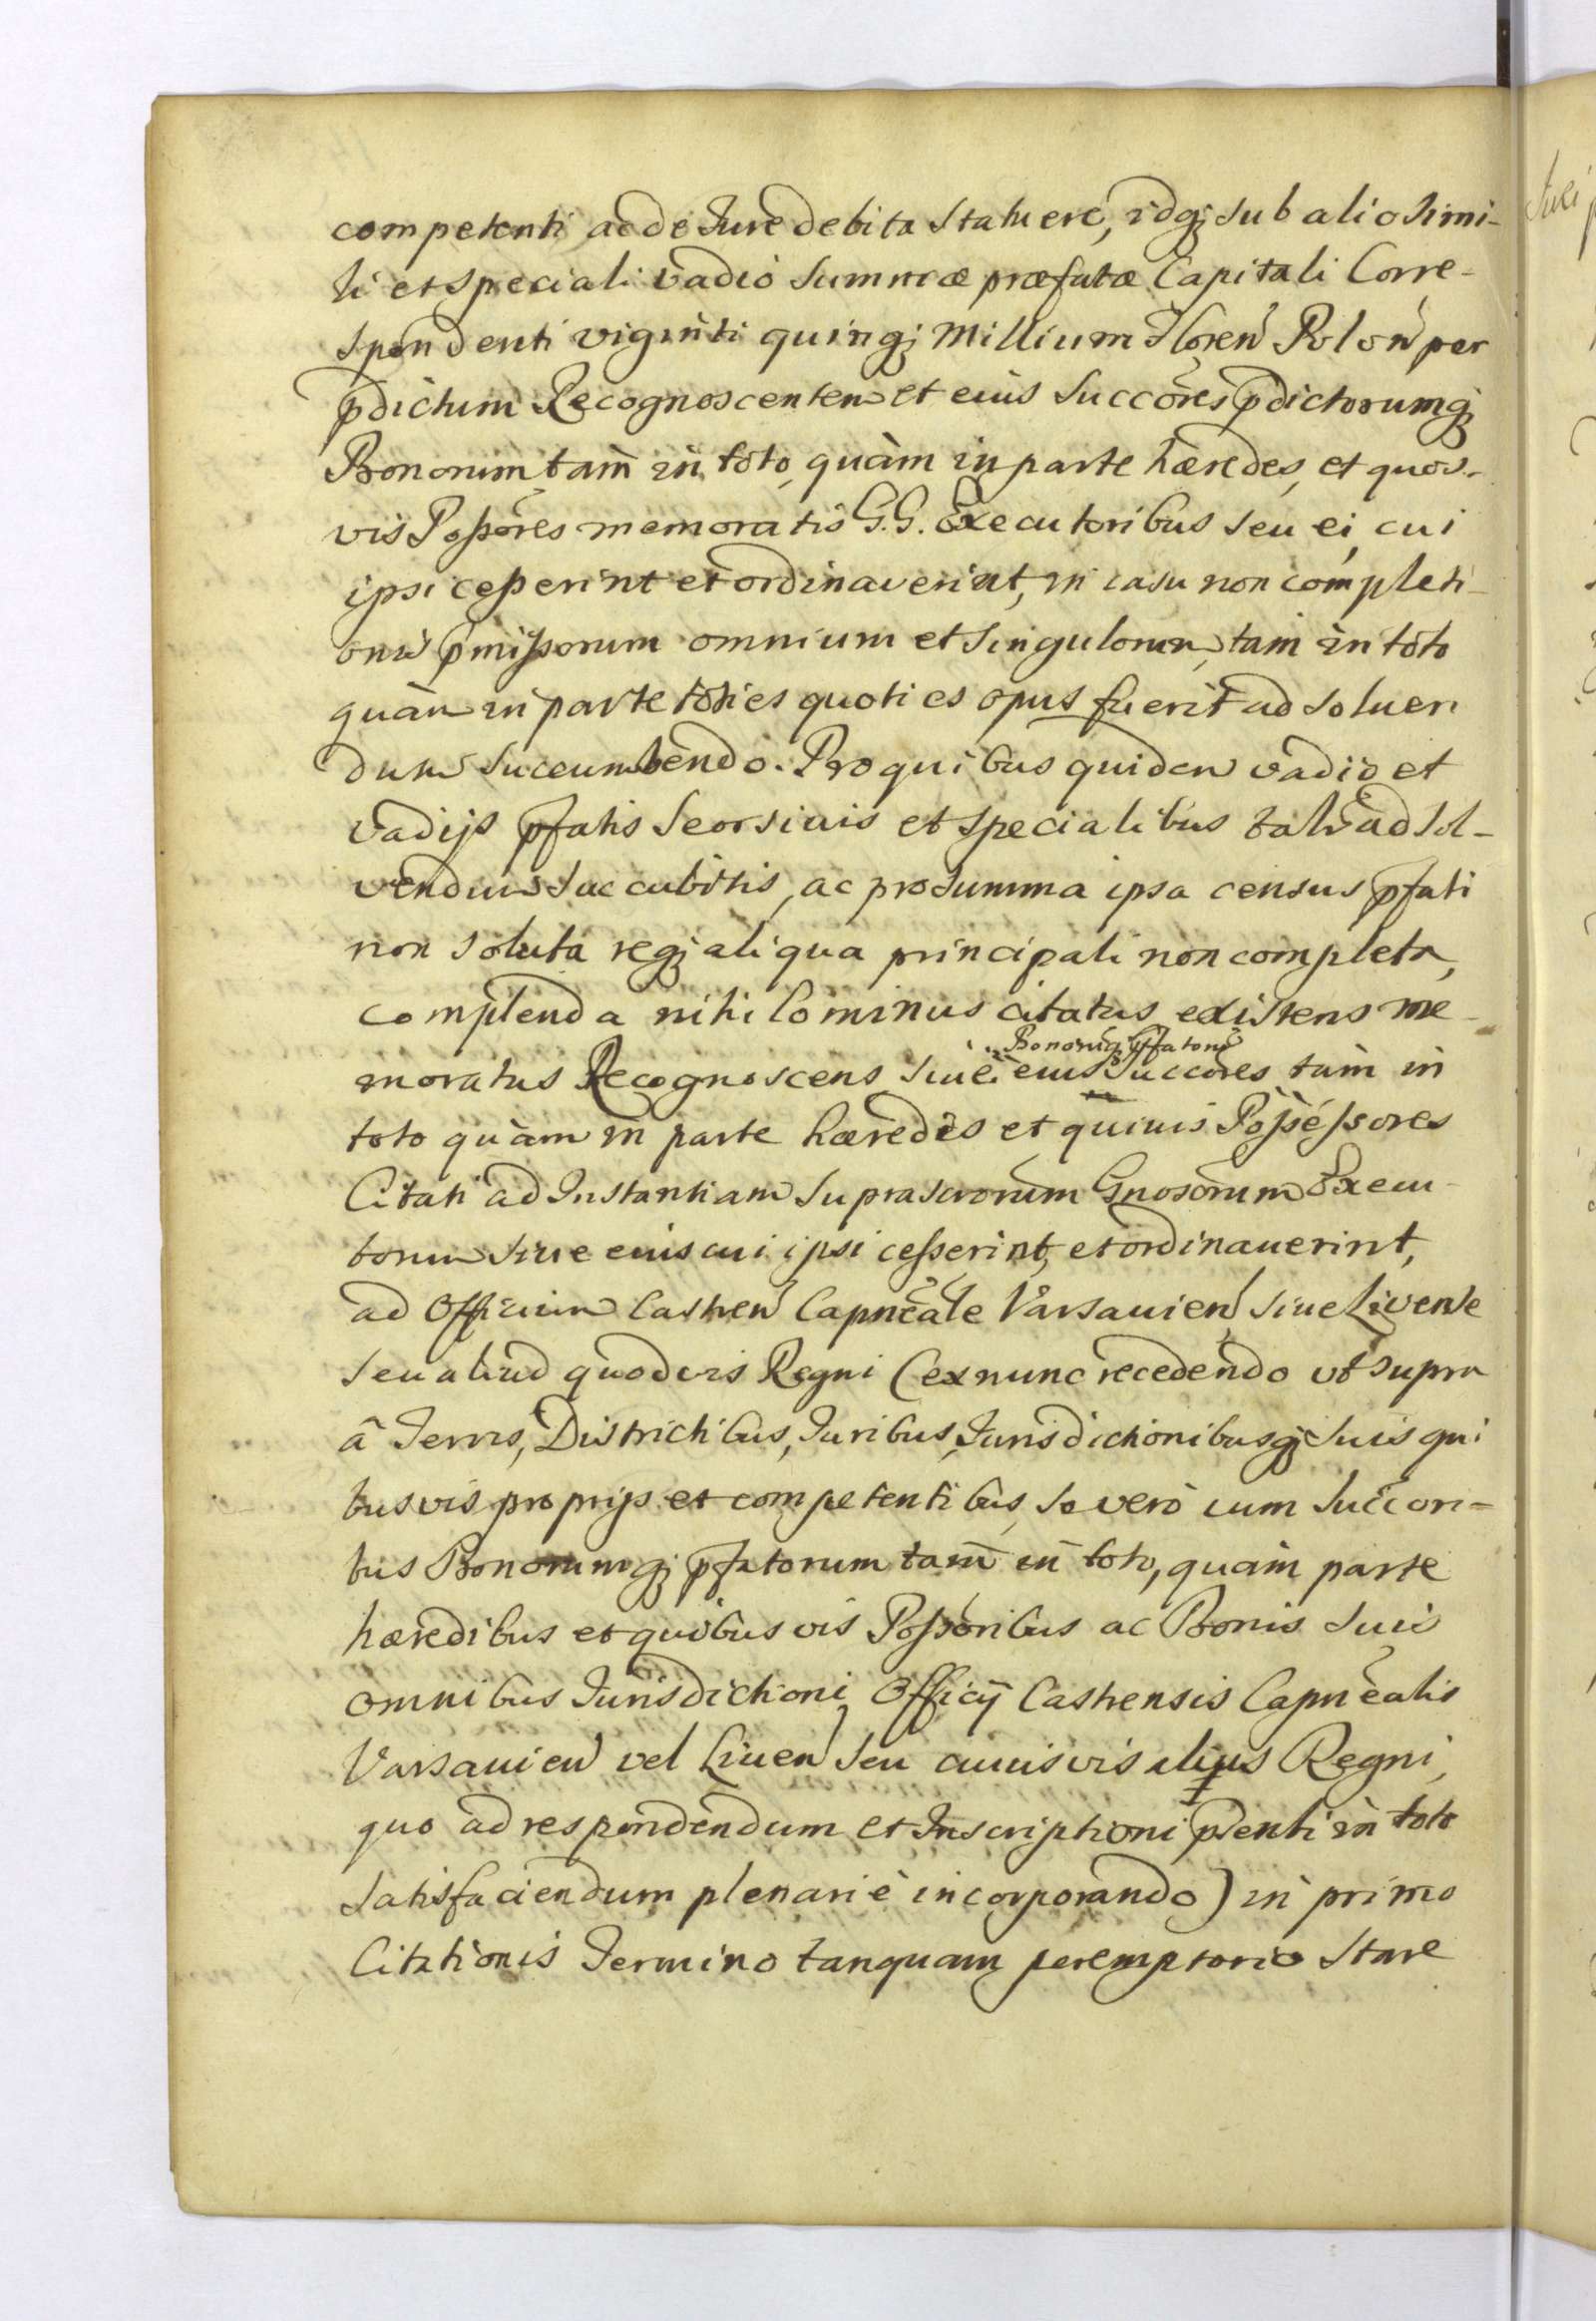 competenti ac de Jure debita statuere, idq; sub alio simi-
li et speciali vadio summæ præfatæ Capitali Corre-
spondenti viginti quinq; Millium Floren Polon per
pdictum Recognoscentem et eius Succores pdictorumq;
Bonorum tam in toto, quàm in parte hæredes, et quos-
vis Possores memoratis G.G. Executoribus seu ei, cui
ipsi cesserint et ordinaverint, in casu non completi-
onis pmissorum omnium et singulorum, tam in toto
quàm in parte toties quoties opus fuerit ad soluen
dum succumbendo. Pro quibus quidem vadio et
vadijs pfatis seorsiuis et specialibus talr ad sol-
vendum succubitis, ac pro summa ipsa census pfati
non soluta req; aliqua principali non completa,
complenda nihilominus citatus existens me-
Bonorumq; pfatorum
moratus Recognoscens siue eius Succores tam in
toto quàm in parte hæredes et quiuis Possessores
Citati ad Instantiam suprascrorum Gnosorum Execu-
torum siue eius cui ipsi cesserint, et ordinauerint,
ad Officium Castren Capneale Varsauien siue Livense
seu aliud quodvis Regni (ex nunc recedendo ut supra
â Terris, Districtibus, Juribus, Jurisdictionibusq; suis qui
busvis proprijs et competentibus, se verò cum Succori-
bus Bonorumq; pfatorum tam in toto, quàm parte
hæredibus et quibusvis Possoribus ac Bonis suis
omnibus Jurisdictioni Officij Castrensis Capnealis
Varsauien vel Liuen seu cuiusvis alius Regni,
quo ad respondendum et Inscriptioni psenti in toto
satisfaciendum plenariè incorporando) in primo
Citationis Termino tanquam peremptorio stare